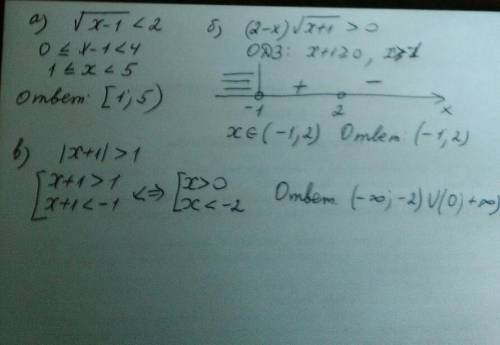 а) √(x-1) < 2
0 ≤ x-1 < 4
1 ≤ x < 5
Ответ: [1; 5)
б) (2-x)√(x+1) > 0
ОДЗ: x+1≥0,
+ -
-1 2 x
x∈(-1,2) Ответ: (-1,2)
в) |x+1| > 1
[x+1>1 <=> [x>0
x+1<-1 x<-2
Ответ (-∞; -2) U (0; +∞)